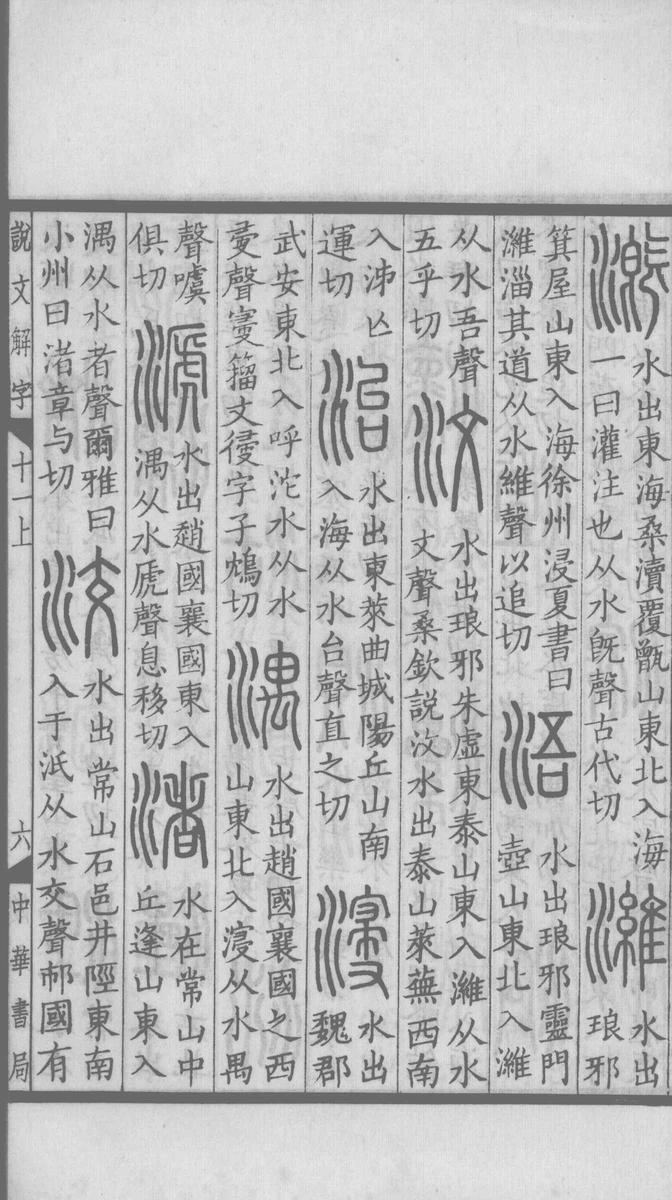 溉水出東海桑瀆覆甑山東北入海一曰灌注也从水旣聲古代切濰水出琅邪
箕屋山東入海徐州浸夏書曰濰淄其道从水維聲以追切浯水出琅邪靈門壺山東北入濰
从水吾聲五乎切汶水出琅邪朱虛東泰山東入濰从水文聲桑欽說汶水出泰山萊蕪西南
入泲亾運切治水出東萊曲城陽丘山南入海从水台聲直之切寖水出魏郡
武安東北入呼沱水从水聲籒文字子鴆切湡水出趙國襄國之西山東北入寖从水禺
聲噳俱切㴲水出趙國襄國東入湡从水虒聲息移切渚水在常山中丘逢山東入
湡从水者聲爾雅曰小州曰渚章与切洨水出常山石邑井陘東南入于泜从水交聲邟國有
說文解字 十一上 六 中華書局